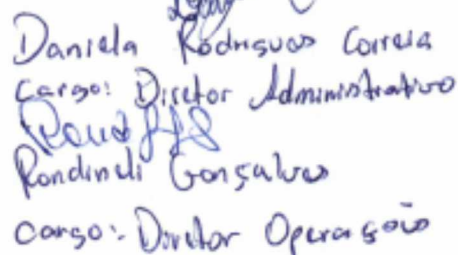 Daniela Rodrigues Correia
Cargo: Diretor Administrativo
Rondineli Gonçalves
Cargo: Diretor Operação